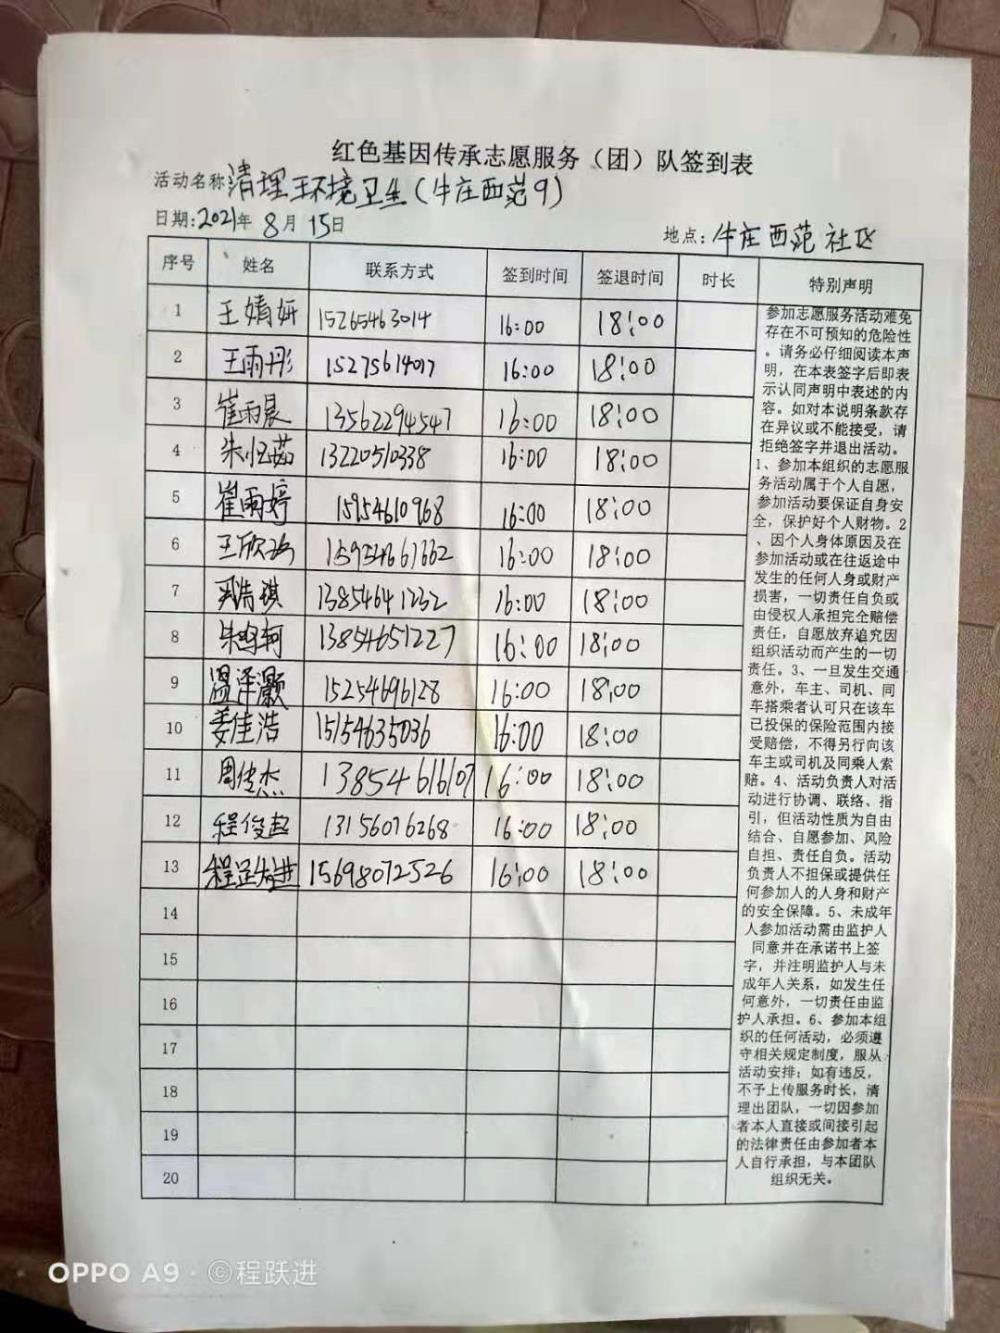 红色基因传承志愿服务（团）队签到表
活动名称 清理环境卫生(牛庄西范9)
日期:2021年 8月 15日
地点: 牛庄西范社区
序号 姓名 联系方式 签到时间 签退时间 时长 特别声明
1 王婧妍 15265463014 16:00 18:00
2 王雨彤 15275614017 16:00 18:00
3 崔雨晨 13562294547 16:00 18:00
4 朱恒茹 13220510338 16:00 18:00
5 崔雨婷 15954610968 16:00 18:00
6 王欣 15954661662 16:00 18:00
7 浩琪 13854641232 16:00 18:00
8 朱鸣轲 13854651227 16:00 18:00
9 温泽灏 15254696128 16:00 18:00
10 姜佳浩 15154635036 16:00 18:00
11 周传杰 13854616107 16:00 18:00
12 程俊起 13156076268 16:00 18:00
13 程跃进 15698072526 16:00 18:00
14
15
16
17
18
19
20
参加志愿服务活动难免
存在不可预知的危险性
。请务必仔细阅读本声
明，在本表签字后即表
示认同声明中表述的内
容。如对本说明条款存
在异议或不能接受，请
拒绝签字并退出活动。
1、参加本组织的志愿服
务活动属于个人自愿，
参加活动要保证自身安
全，保护好个人财物。2
、因个人身体原因及在
参加活动或在往返途中
发生的任何人身或财产
损害，一切责任自负或
由侵权人承担完全赔偿
责任，自愿放弃追究因
组织活动而产生的一切
责任。3、一旦发生交通
意外，车主、司机、同
车搭乘者认可只在该车
已投保的保险范围内接
受赔偿，不得另行向该
车主或司机及同乘人索
赔。4、活动负责人对活
动进行协调、联络、指
引，但活动性质为自由
结合、自愿参加、风险
自担、责任自负。活动
负责人不担保或提供任
何参加人的人身和财产
的安全保障。5、未成年
人参加活动需由监护人
同意并在承诺书上签
字，并注明监护人与未
成年人关系，如发生任
何意外，一切责任由监
护人承担。6、参加本组
织的任何活动，必须遵
守相关规定制度，服从
活动安排；如有违反，
不予上传服务时长，清
理出团队，一切因参加
者本人直接或间接引起
的法律责任由参加者本
人自行承担，与本团队
组织无关。
OPPO A9 · ©程跃进